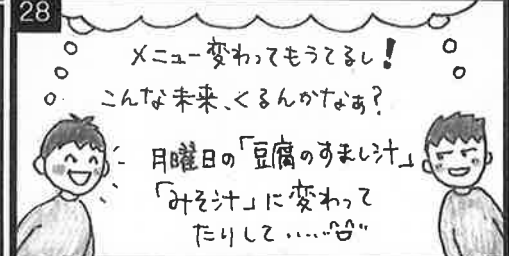 28
メニュー変わってもうてるし!
こんな未来、くるんかなぁ?
月曜日の「豆腐のすまし汁」
「みそ汁」に変わって
たりして……